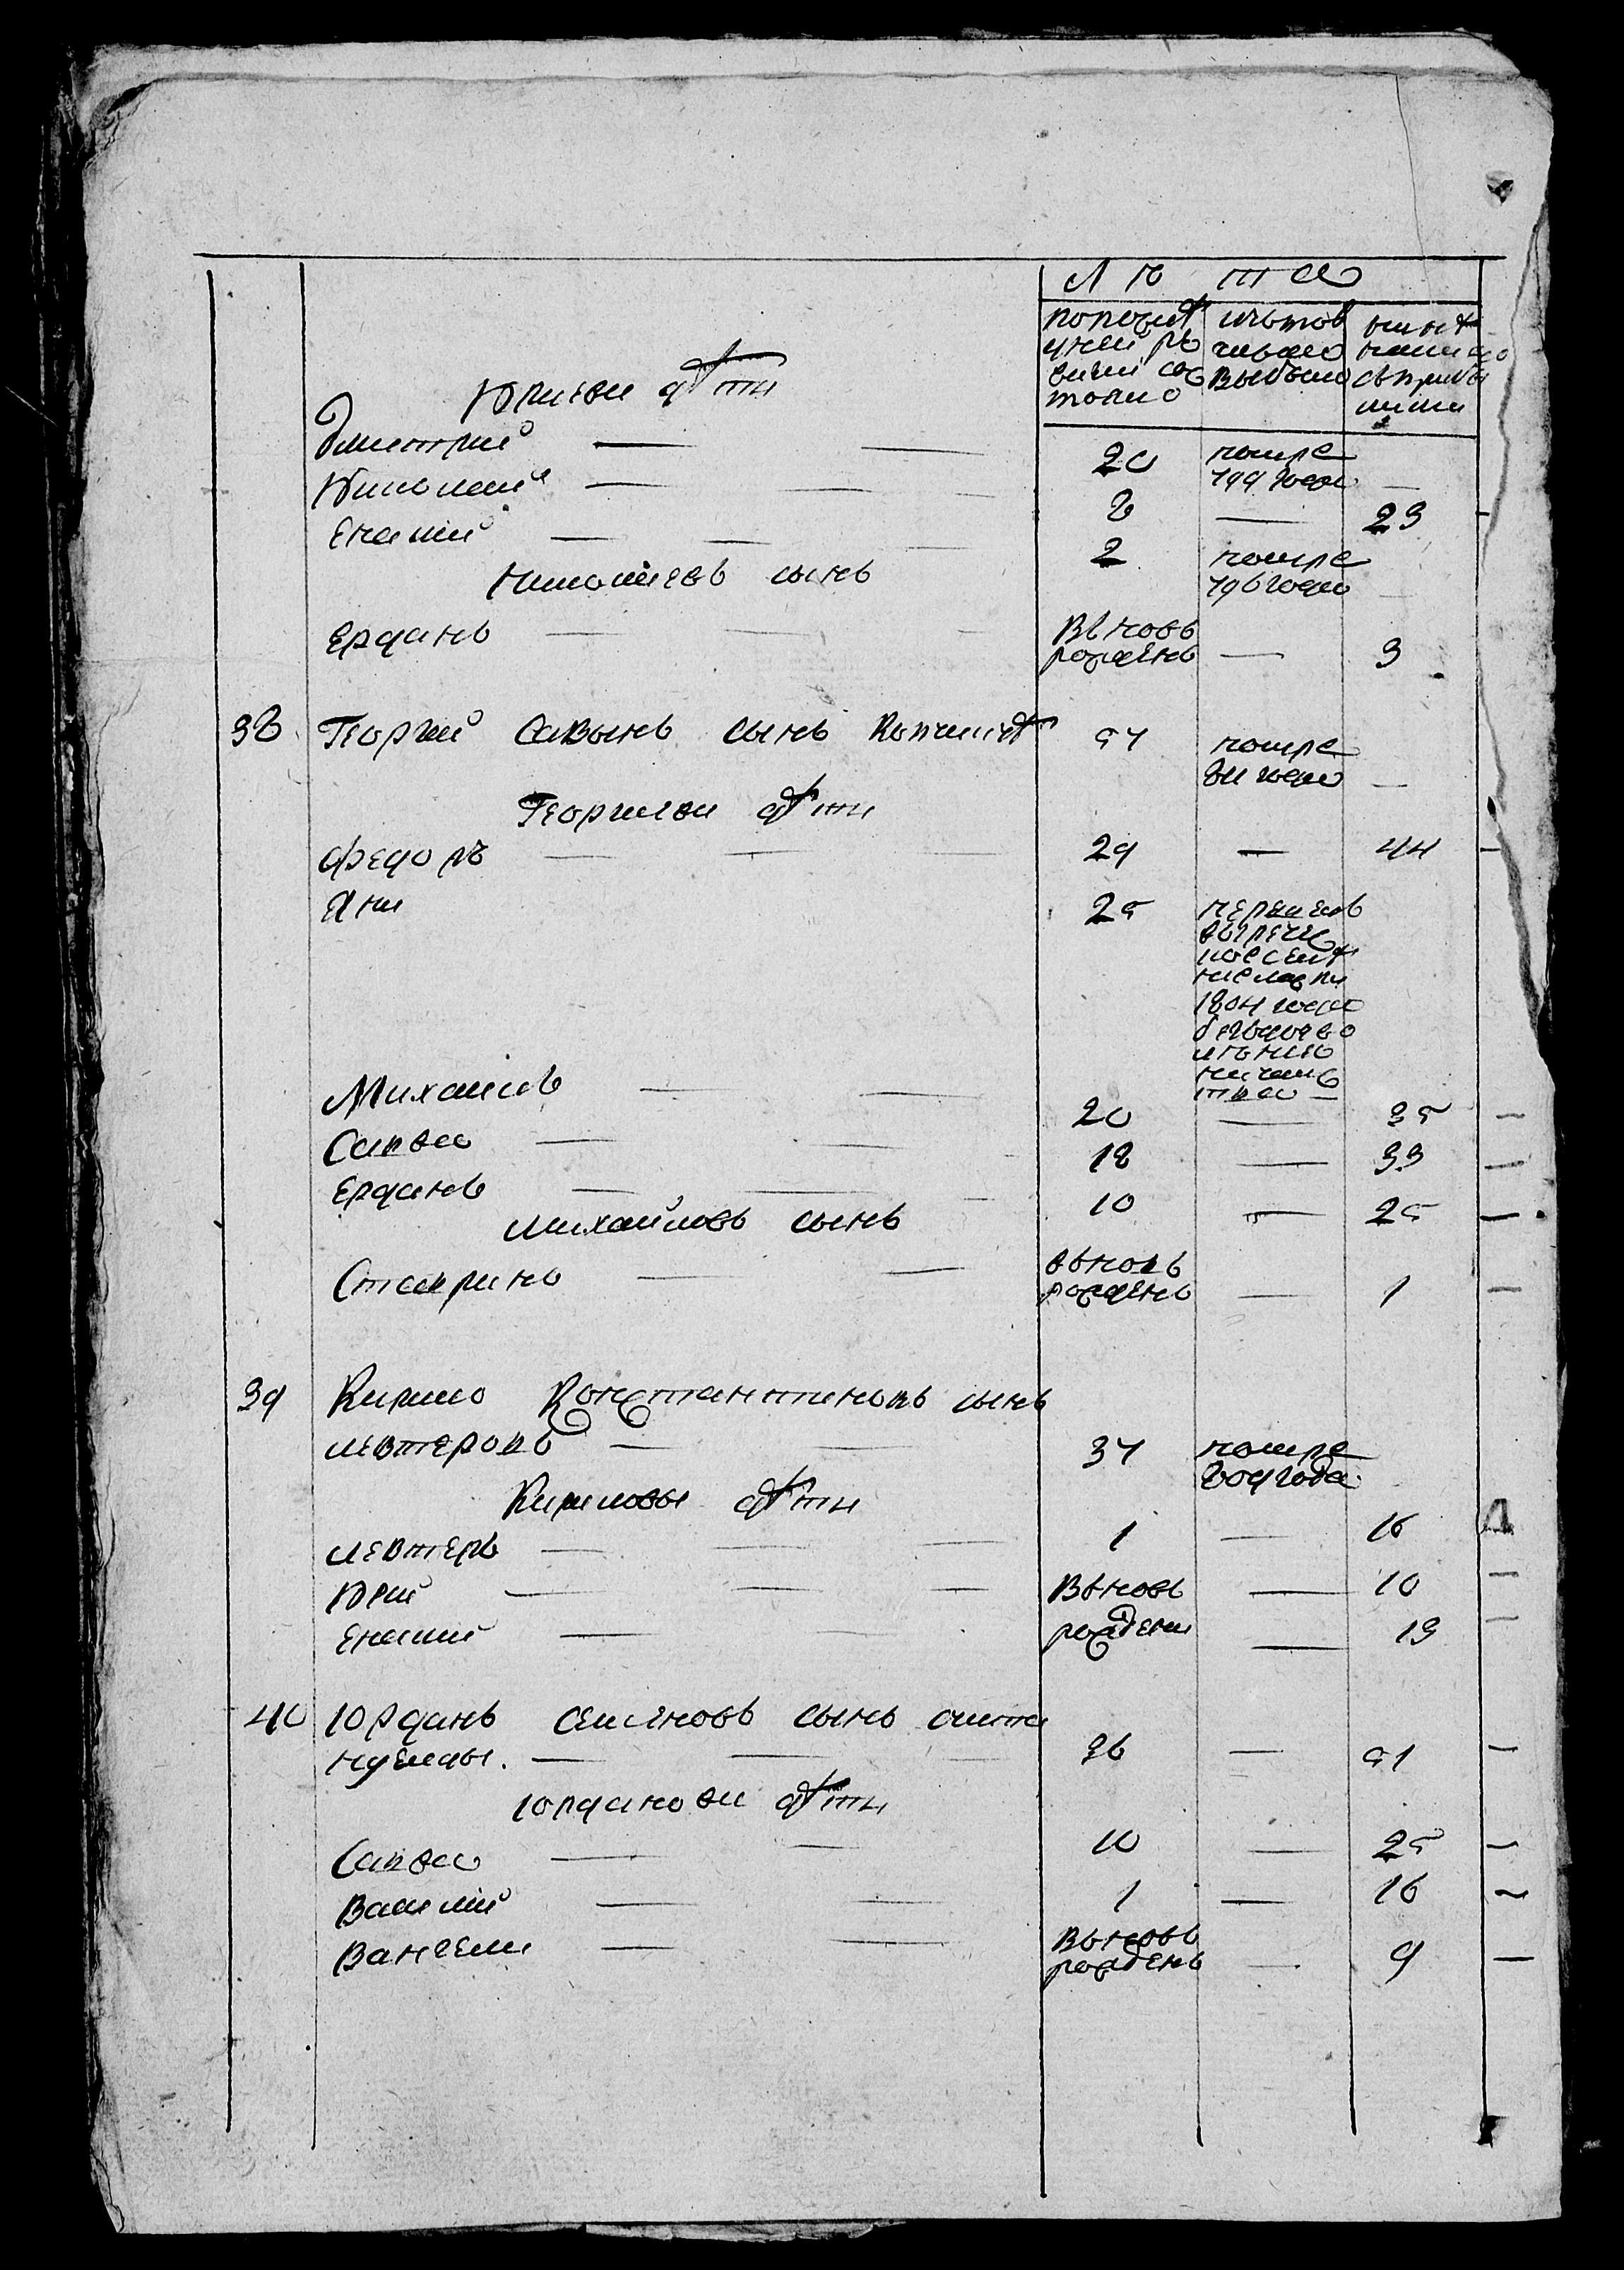 Лѣта
попослѣ
дней ре
визии сос
тояло
исътов
числа
выбыло
ныне
налицо
съприбы
лыми
Юриеви дѣти
Дмитрий — — 20 помре
799 года —
Николай — — 8 — 23
Енаший — — 2 помре
796 года —
Николаевъ сынъ
Ерданъ — — вьновь
рожденъ — 3
38 Георгий Саввынъ сынъ 57 помре
811 года —
Георгиеви дѣти
Федоръ — — 29 — 44
Яни 25
1804 года
Михаилъ — — 20 — 35
Савва — — 18 — 33
Ерданъ — — 10 — 25
Михайловъ сынъ
Ставринъ — — вьновь
рожденъ — 1
39 Кирило Константиновъ сынъ
Левтеровъ — — 37 помре
809 года
Кириловы дѣти
Левтеръ — — 1 — 16
Юрий — — вьновь — 10
Енаший — — рождени — 13
40 Юрданъ Семеновъ сынъ
— — 36 — 51
Юрданови дѣти
Савва — — 10 — 25
Василий — — 1 — 16
Вангели — — вьновь
рожденъ — 9